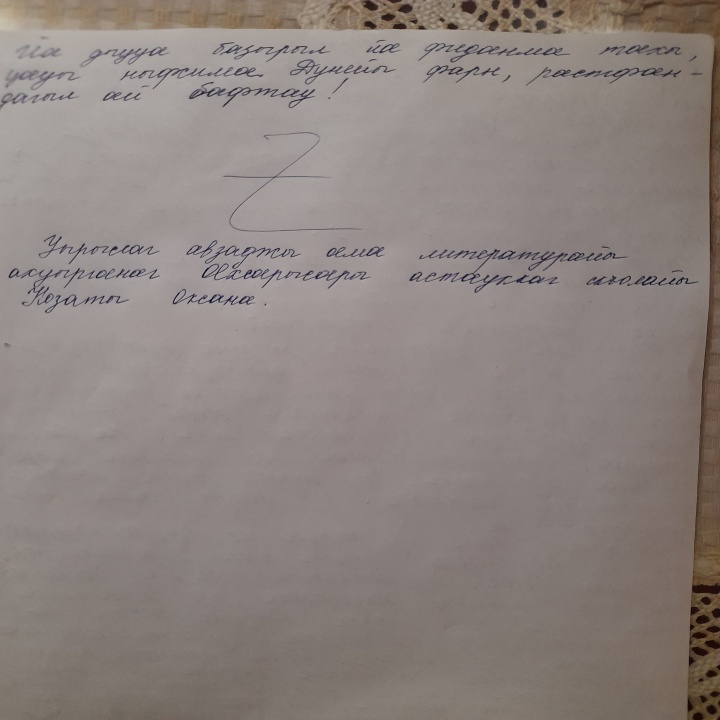 Йæ дыууæ базырыл йæ фыдæлтæ тæхы,
цæуы ныфсимæ. Дунейы фарн, рæстфæн-
дагыл æй бафтау!
Z
Уырыссаг æвзаджы æмæ литературæйы
ахуыргæнæг Æхсæрысæры астæуккаг скъолайы
Козаты Оксанæ.